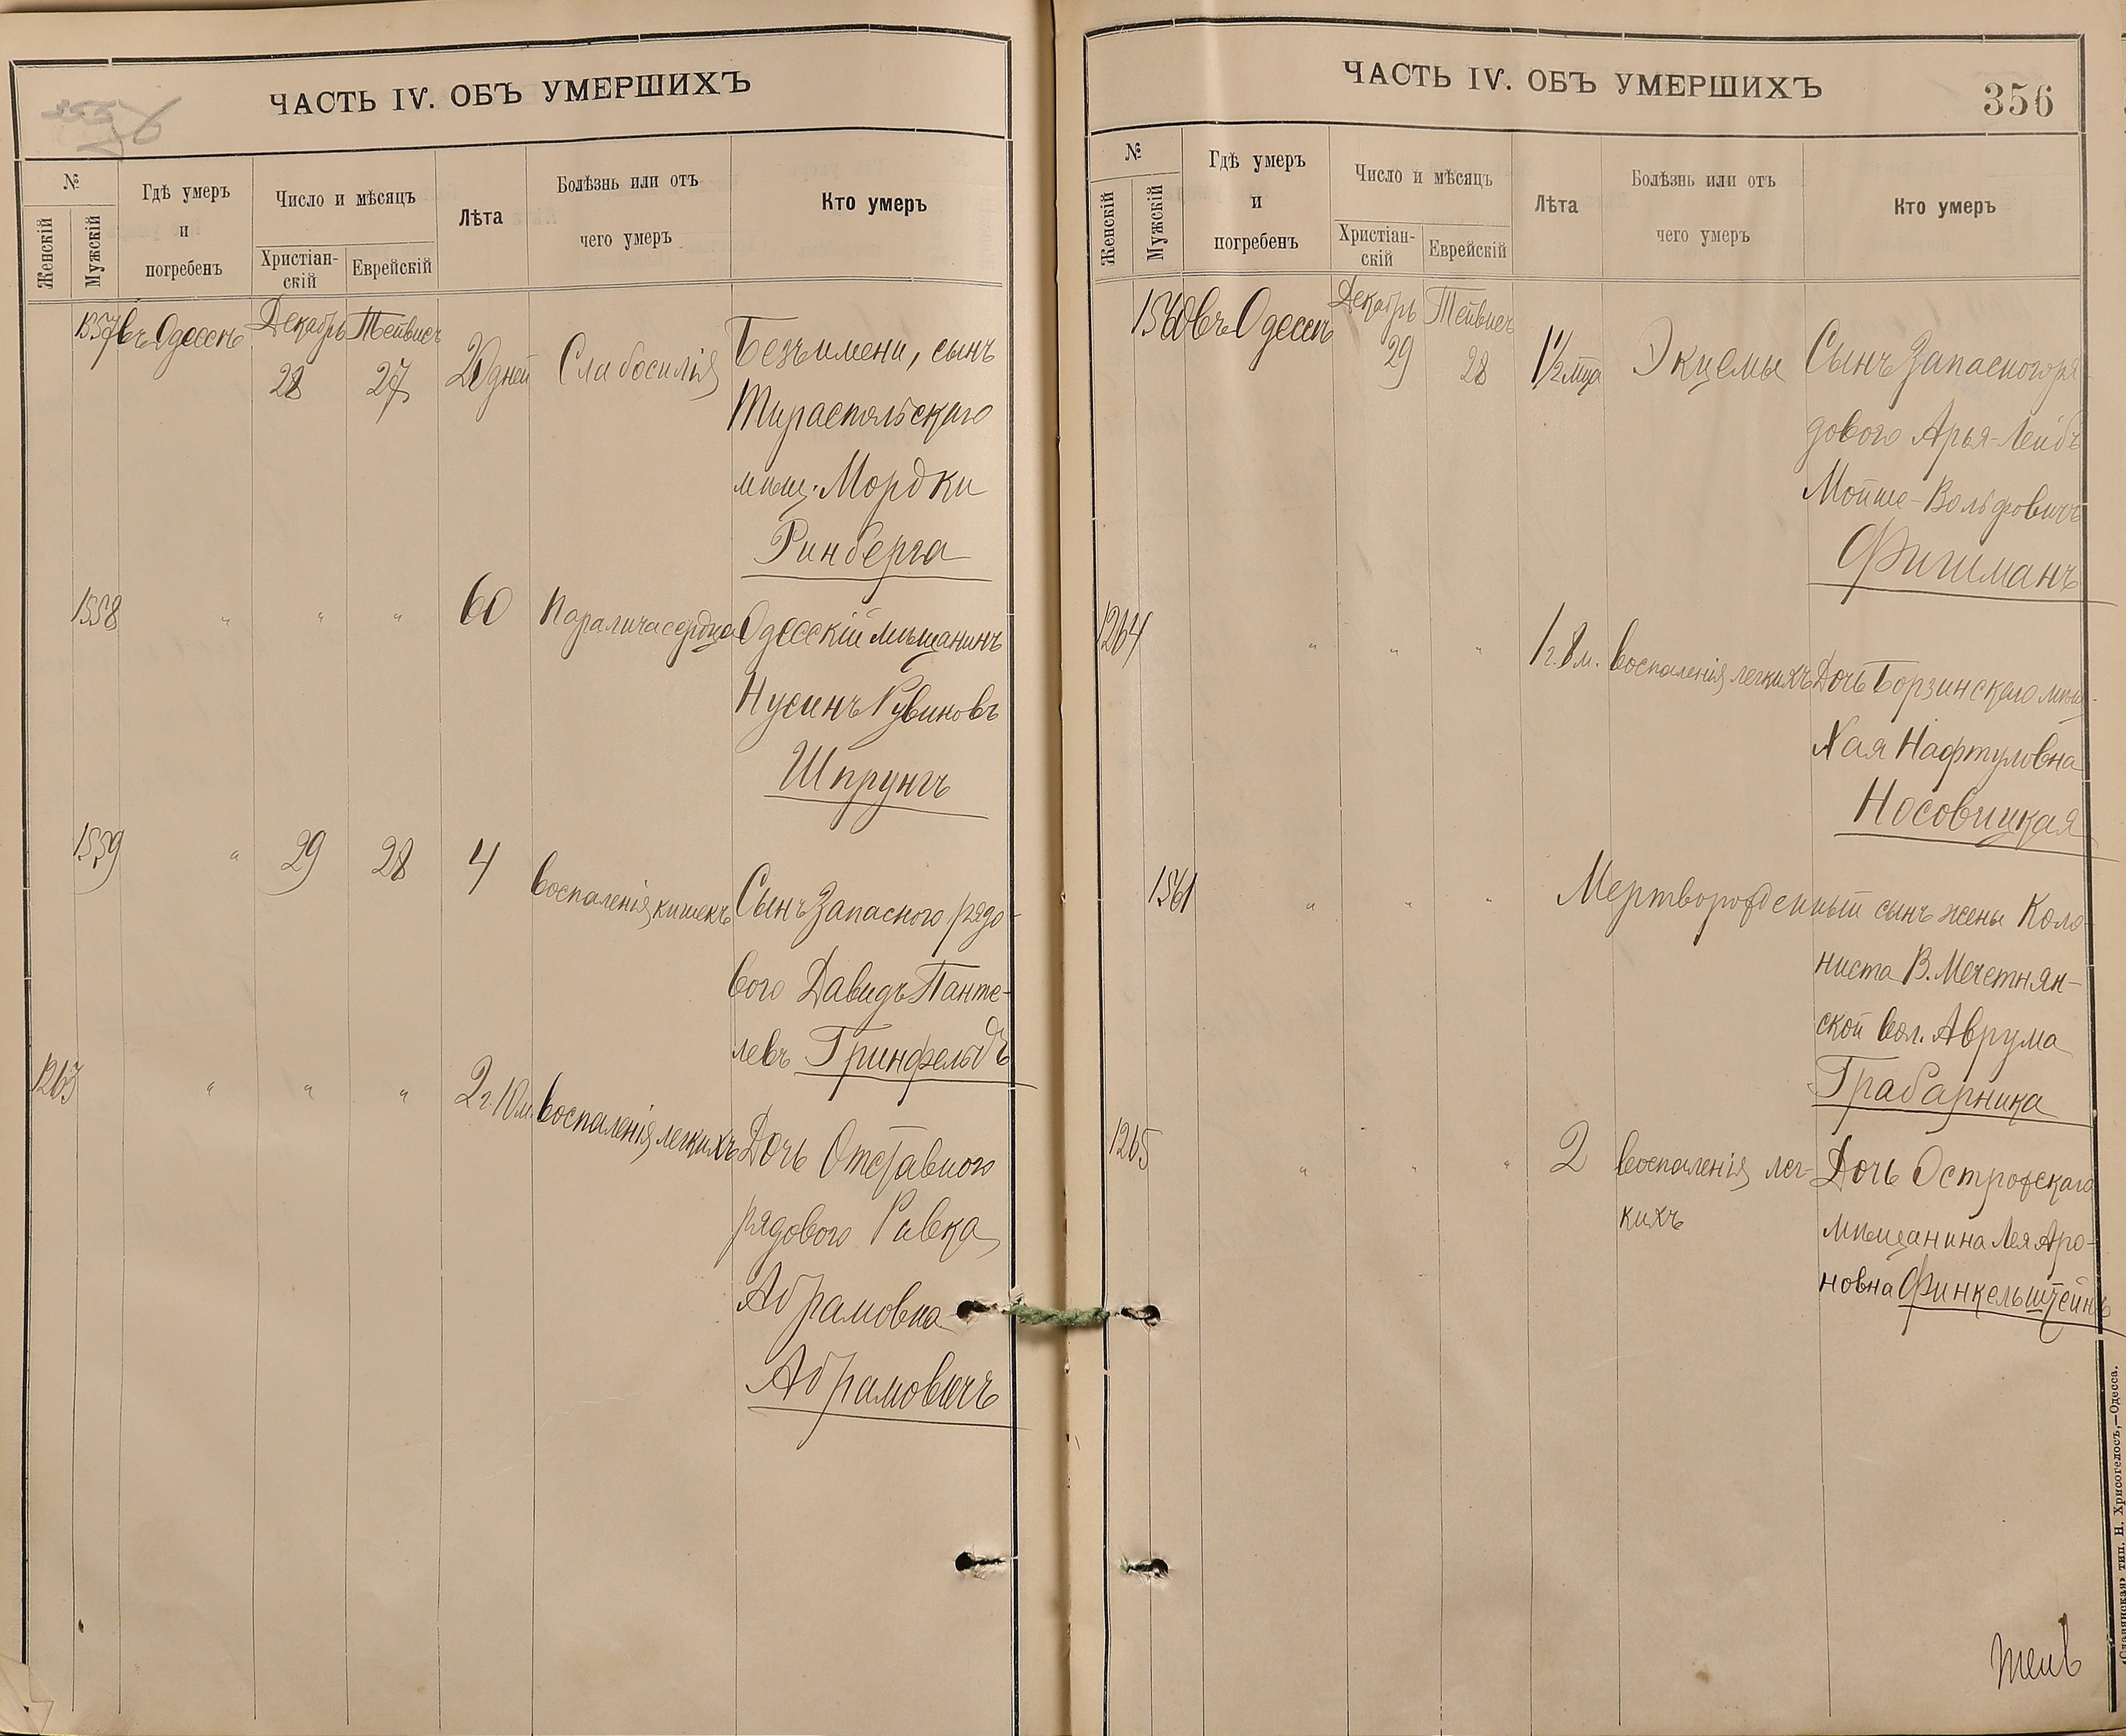 ЧАСТЬ IV. ОБЪ УМЕРШИХЪ
№
Женскій
Мужскій
Гдѣ умеръ
и
погребенъ
Число и мѣсяцъ
Христіан-
скій
Еврейскій
Лѣта
Болѣзнь или отъ
чего умеръ
Кто умеръ
1557 въ Одессѣ Декабрь 28 Тейвисъ 27 20 дней Слабосилія Безъ имени, сынъ
Тираспольскаго
мѣщ. Мордки
Ринберга
1558 " " " 60 Паралича сердца Одесскій мѣщанинъ
Нусинъ Рувиновъ
Шпрунгъ
1559 " 29 28 4 воспаленія кишекъ Сынъ Запасного рядо-
вого Давидъ Панте-
левъ Гринфельдъ
1263 " " " 2 г. 10 м. воспаленія легкихъ Дочь Отставного
рядового Ривка
Абрамовна
Абрамовичъ
ЧАСТЬ IV. ОБЪ УМЕРШИХЪ
356
№
Женскій
Мужскій
Гдѣ умеръ
и
погребенъ
Число и мѣсяцъ
Христіан-
скій
Еврейскій
Лѣта
Болѣзнь или отъ
чего умеръ
Кто умеръ
1560 въ Одессѣ Декабрь 29 Тейвисъ 28 1½ мѣс Экцемы Сынъ Запасного ря
дового Арья-Лейбъ
Мойше-Вольфовичъ
Фишманъ
1264 " " " 1 г. 8 м. воспаленія легкихъ Дочь Борзинскаго мѣщ.
Хая Нафтуловна
Носовицкая
1561 " " " Мертворожденный сынъ жены Коло-
ниста В. Мечетнян-
ской вол. Аврума
Грабарника
1265 " " " 2 воспаленія лег- Дочь Острожскаго
кихъ мѣщанина Лея Аро-
новна Финкельштейнъ
«Славянская» тип. Н. Хрисогелосъ,—Одесса.